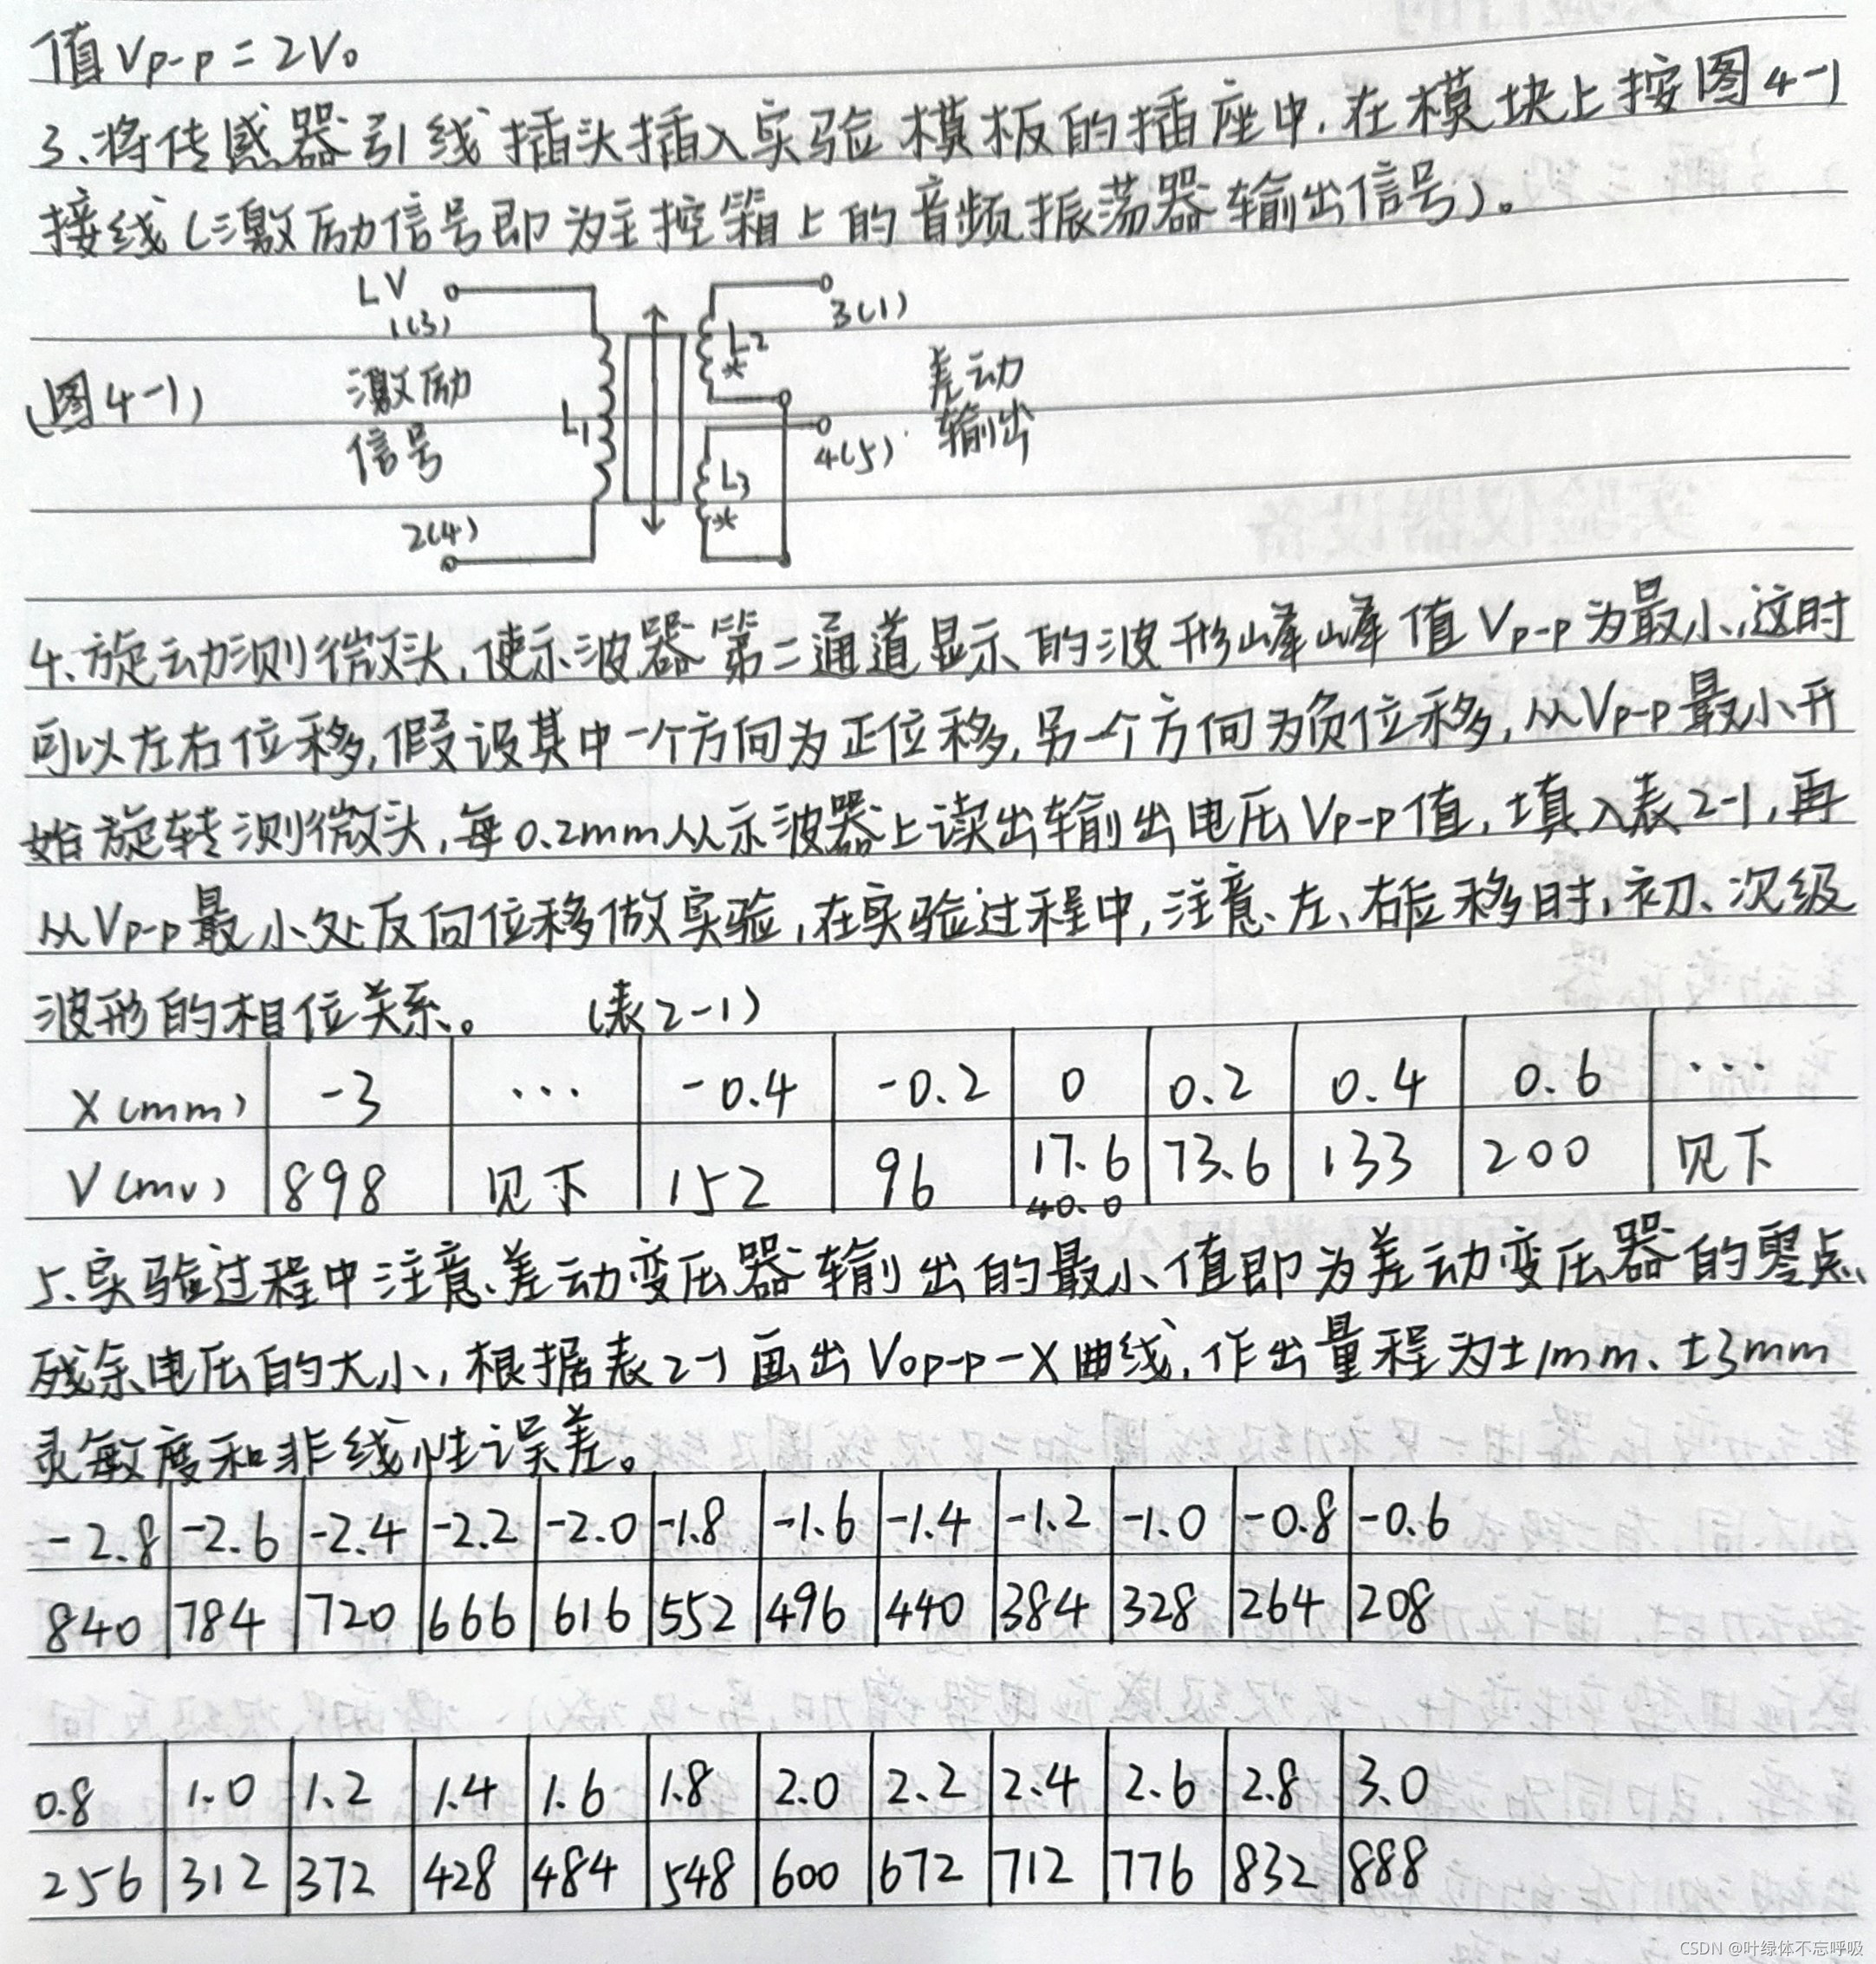 值Vp-p=2V。
3、将传感器引线插头插入实验模板的插座中,在模块上按图4-1
接线(激励信号即为主控箱上的音频振荡器输出信号)。
LV
1(3)
3(1)
L2
*
(图4-1)
激励
信号
L1
差动
输出
4(5)
L3
*
2(4)
4、旋动测微头,使示波器第二通道显示的波形峰峰值Vp-p为最小,这时
可以左右位移,假设其中一个方向为正位移,另一个方向为负位移,从Vp-p最小开
始旋转测微头,每0.2mm从示波器上读出输出电压Vp-p值,填入表2-1,再
从Vp-p最小处反向位移做实验,在实验过程中,注意、左、右位移时,初、次级
波形的相位关系。 (表2-1)
X(mm) -3 ... -0.4 -0.2 0 0.2 0.4 0.6 ...
V(mv) 898 见下 152 96 17.6 73.6 133 200 见下
40.0
5、实验过程中注意、差动变压器输出的最小值即为差动变压器的零点
残余电压的大小,根据表2-1画出Vop-p-X曲线,作出量程为±1mm、±3mm
灵敏度和非线性误差。
-2.8 -2.6 -2.4 -2.2 -2.0 -1.8 -1.6 -1.4 -1.2 -1.0 -0.8 -0.6
840 784 720 666 616 552 496 440 384 328 264 208
0.8 1.0 1.2 1.4 1.6 1.8 2.0 2.2 2.4 2.6 2.8 3.0
256 312 372 428 484 548 600 672 712 776 832 888
CSDN @叶绿体不忘呼吸